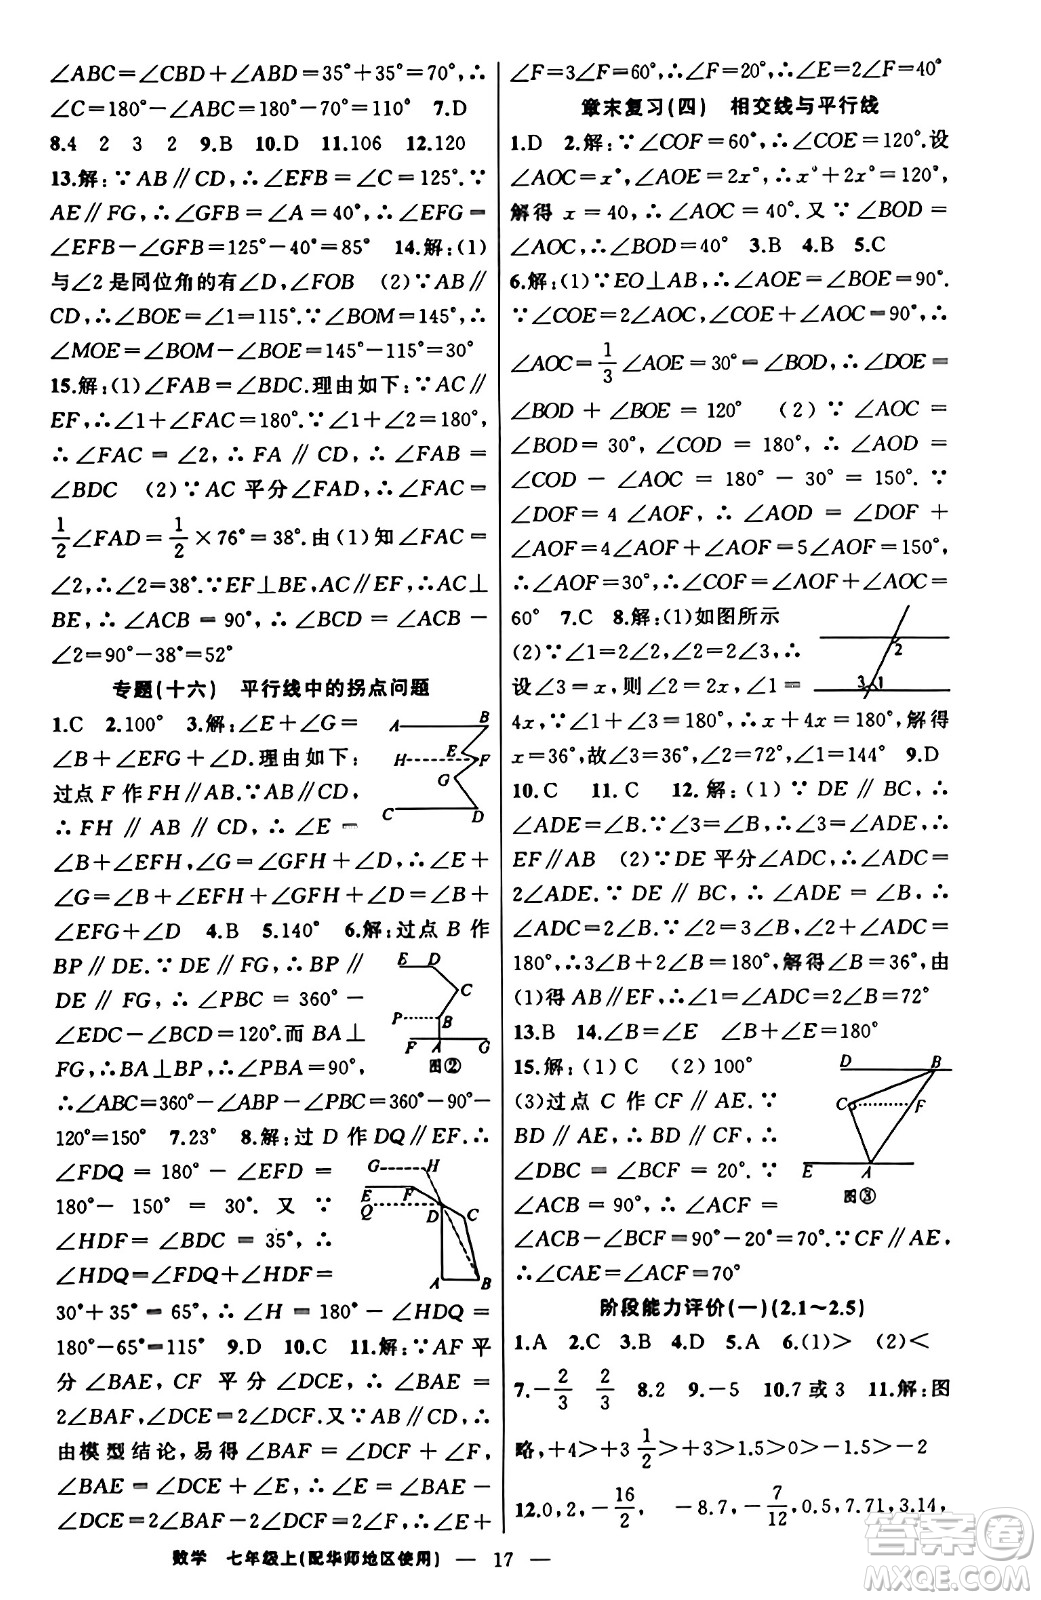 ∠ABC=∠CBD+∠ABD=35°+35°=70°,∴
∠C=180°-∠ABC=180°-70°=110° 7.D
8.4 2 3 2 9.B 10.D 11.106 12.120
13.解:∵AB∥CD,∴∠EFB=∠C=125°.∵
AE∥FG,∴∠GFB=∠A=40°,∴∠EFG=
∠EFB-∠GFB=125°-40°=85° 14.解:(1)
与∠2是同位角的有∠D,∠FOB (2)∵AB∥
CD,∴∠BOE=∠1=115°.∵∠BOM=145°,∴
∠MOE=∠BOM-∠BOE=145°-115°=30°
15.解:(1)∠FAB=∠BDC.理由如下:∵AC∥
EF,∴∠1+∠FAC=180°.∵∠1+∠2=180°,
∴∠FAC=∠2,∴FA∥CD,∴∠FAB=
∠BDC (2)∵AC平分∠FAD,∴∠FAC=
1/2∠FAD=1/2×76°=38°.由(1)知∠FAC=
∠2,∴∠2=38°.∵EF⊥BE,AC∥EF,∴AC⊥
BE,∴∠ACB=90°,∴∠BCD=∠ACB-
∠2=90°-38°=52°
专题(十六) 平行线中的拐点问题
1.C 2.100° 3.解:∠E+∠G=
∠B+∠EFG+∠D.理由如下:
过点F作FH∥AB.∵AB∥CD,
∴FH∥AB∥CD,∴∠E=
∠B+∠EFH,∠G=∠GFH+∠D,∴∠E+
∠G=∠B+∠EFH+∠GFH+∠D=∠B+
∠EFG+∠D 4.B 5.140° 6.解:过点B作
BP∥DE.∵DE∥FG,∴BP∥
DE∥FG,∴∠PBC=360°-
∠EDC-∠BCD=120°.而BA⊥
FG,∴BA⊥BP,∴∠PBA=90°,
∴∠ABC=360°-∠ABP-∠PBC=360°-90°-
120°=150° 7.23° 8.解:过D作DQ∥EF.∴
∠FDQ=180°-∠EFD=
180°-150°=30°.又∵
∠HDF=∠BDC=35°,∴
∠HDQ=∠FDQ+∠HDF=
30°+35°=65°,∴∠H=180°-∠HDQ=
180°-65°=115° 9.D 10.C 11.解:∵AF平
分∠BAE,CF平分∠DCE,∴∠BAE=
2∠BAF,∠DCE=2∠DCF.又∵AB∥CD,∴
由模型结论,易得∠BAF+∠DCF=∠F,
∠BAE+∠DCE=∠E,∴∠E=∠BAE+
∠DCE=2∠BAF+2∠DCF=2∠F,∴∠E+
A B H E F G C D
E D C P B F A G 图②
G H E F Q D C A B
数学 七年级上(配华师地区使用) — 17 —
∠F=3∠F=60°,∴∠F=20°,∴∠E=2∠F=40°
章末复习(四) 相交线与平行线
1.D 2.解:∵∠COF=60°,∴∠COE=120°.设
∠AOC=x°,∠AOE=2x°,∴x°+2x°=120°,
解得x=40,∴∠AOC=40°.又∵∠BOD=
∠AOC,∴∠BOD=40° 3.B 4.B 5.C
6.解:(1)∵EO⊥AB,∴∠AOE=∠BOE=90°.
∵∠COE=2∠AOC,∠COE+∠AOC=90°,∴
∠AOC=1/3∠AOE=30°=∠BOD,∴∠DOE=
∠BOD+∠BOE=120° (2)∵∠AOC=
∠BOD=30°,∠COD=180°,∴∠AOD=
∠COD-∠AOC=180°-30°=150°.∵
∠DOF=4∠AOF,∴∠AOD=∠DOF+
∠AOF=4∠AOF+∠AOF=5∠AOF=150°,
∴∠AOF=30°,∴∠COF=∠AOF+∠AOC=
60° 7.C 8.解:(1)如图所示
(2)∵∠1=2∠2,∠2=2∠3,∴
设∠3=x,则∠2=2x,∠1=
4x,∵∠1+∠3=180°,∴x+4x=180°,解得
x=36°,故∠3=36°,∠2=72°,∠1=144° 9.D
10.C 11.C 12.解:(1)∵DE∥BC,∴
∠ADE=∠B.∵∠3=∠B,∴∠3=∠ADE,∴
EF∥AB (2)∵DE平分∠ADC,∴∠ADC=
2∠ADE.∵DE∥BC,∴∠ADE=∠B,∴
∠ADC=2∠B,∵∠2=3∠B,∠2+∠ADC=
180°,∴3∠B+2∠B=180°,解得∠B=36°,由
(1)得AB∥EF,∴∠1=∠ADC=2∠B=72°
13.B 14.∠B=∠E ∠B+∠E=180°
15.解:(1)C (2)100°
(3)过点C作CF∥AE.∵
BD∥AE,∴BD∥CF,∴
∠DBC=∠BCF=20°.∵
∠ACB=90°,∴∠ACF=
∠ACB-∠BCF=90°-20°=70°.∵CF∥AE,
∴∠CAE=∠ACF=70°
2 3 1
D B C F E A 图③
阶段能力评价(一)(2.1～2.5)
1.A 2.C 3.B 4.D 5.A 6.(1)> (2)<
7.-2/3 2/3 8.2 9.-5 10.7或3 11.解:图
略,+4>+3 1/2>+1.5>0>-1.5>-2
12.0,2,-16/2, -8.7,-7/12,0.5,7.71,3.14,
答案圈
MXQE.COM